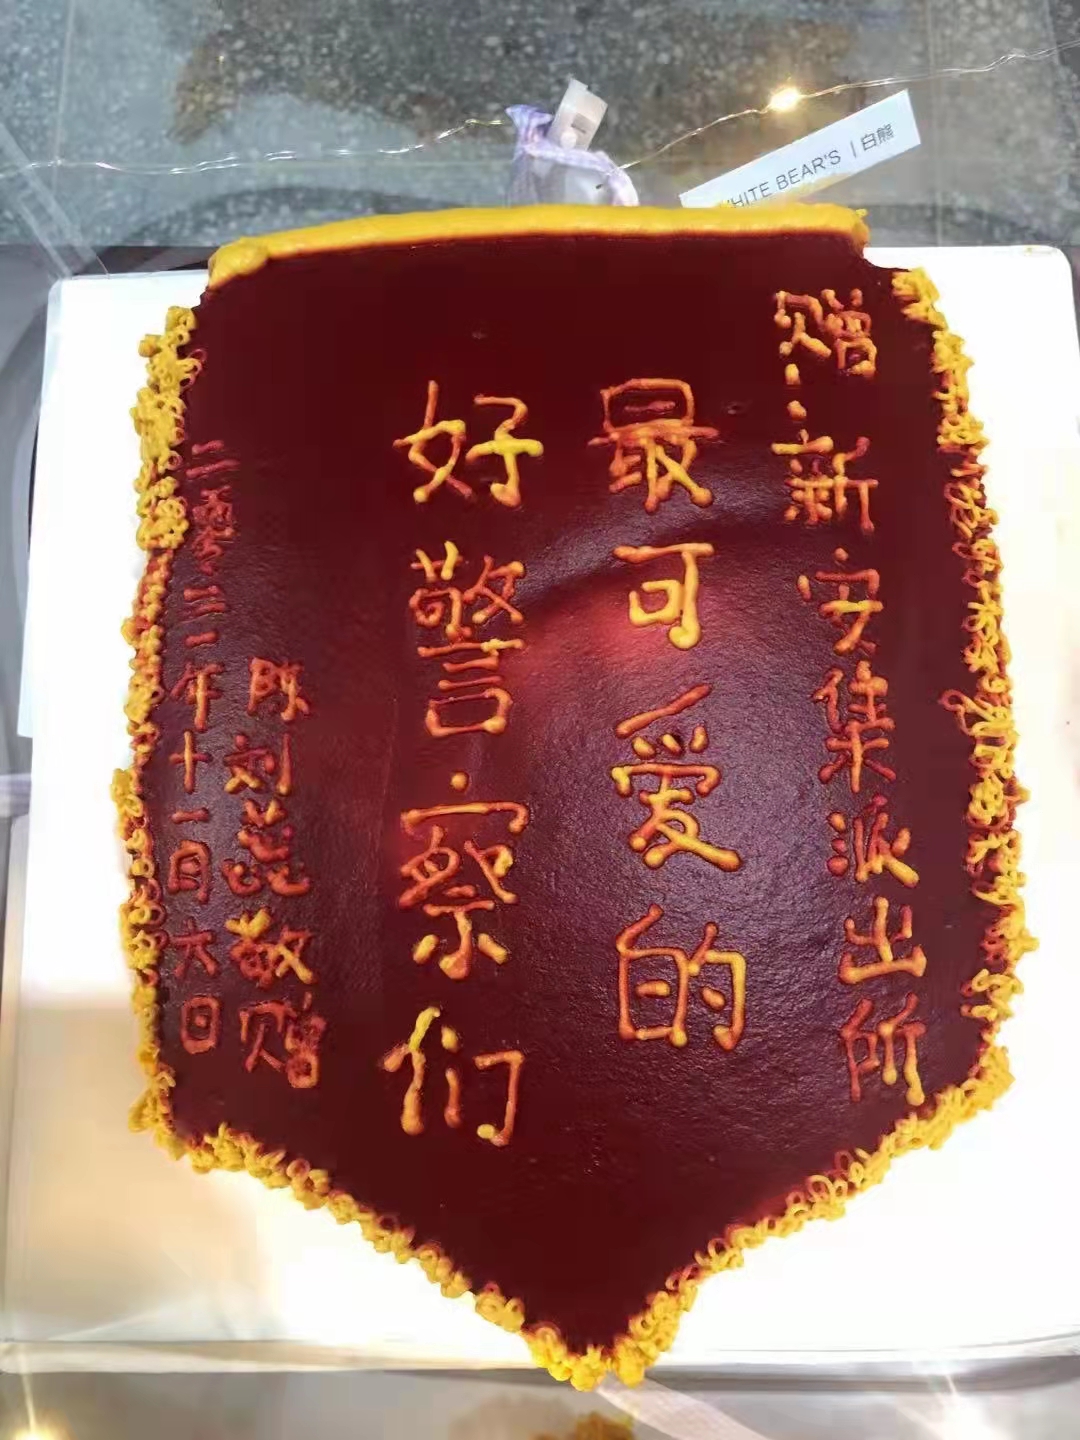 WHITE BEAR'S | 白熊
赠:新安集派出所
最可爱的
好警察们
陈刘蕊敬赠
二零二一年十一月六日